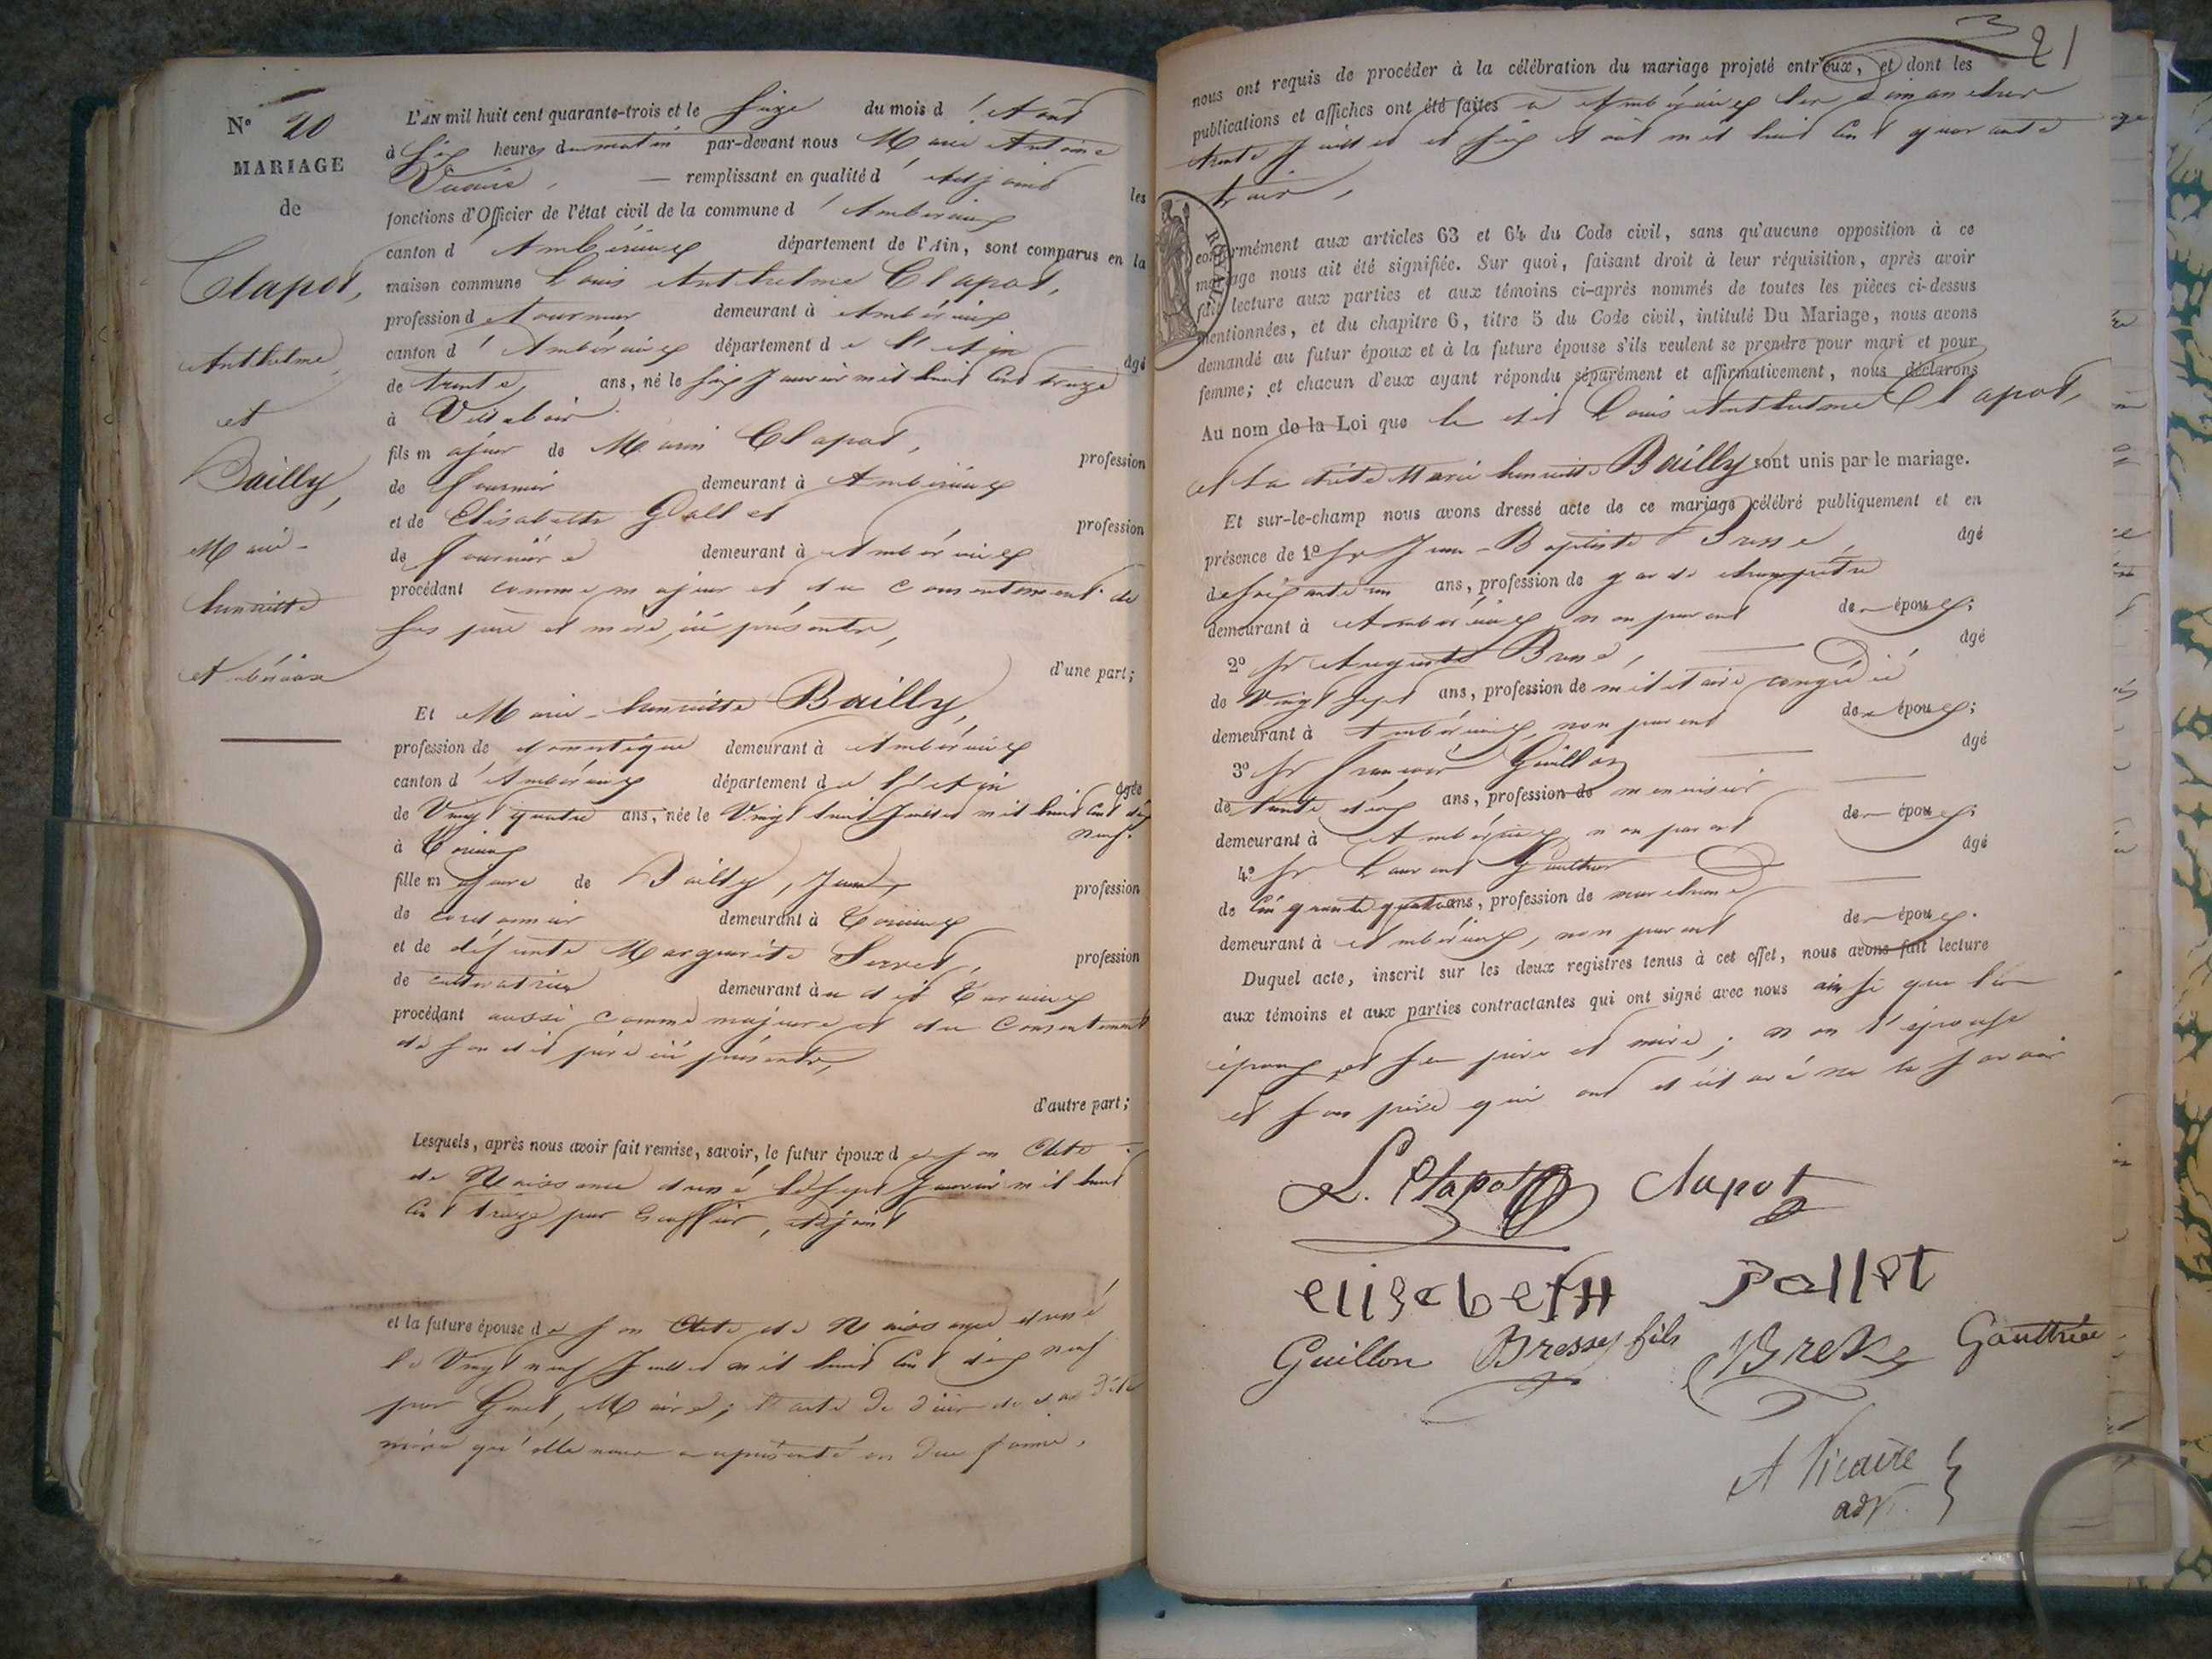 N° 20
MARIAGE
de
Clapot,
Anthelme
et
Bailly,
Marie-
henriette
L'AN mil huit cent quarante-trois et le seize du mois d'Aout
à six heures du matin par-devant nous Marie Antoine
remplissant en qualité d'Adjoint les
fonctions d'Officier de l'état civil de la commune d'Ambérieux
canton d'Ambérieux département de l'Ain, sont comparus en la
maison commune Louis Anthelme Clapot,
profession de tourneur demeurant à Ambérieux
canton d'Ambérieux département de l'Ain âgé
de trente, ans, né le six Janvier mil huit cent treize
à Villebois
fils majeur de Marin Clapot, profession
de fournier demeurant à Ambérieux
et de Elisabeth Pallet profession
de fournière demeurant à Ambérieux
procédant comme majeur et du consentement de
ses père et mère, ici présents,
d'une part;
Et Marie-henriette Bailly,
profession de domestique demeurant à Ambérieux
canton d'Ambérieux département de l'Ain âgée
de Vingt quatre ans, née le Vingt huit Juillet mil huit cent dix
neuf.
à
fille majeure de Bailly, profession
de cordonnier demeurant à
et de défunte Marguerite Serret, profession
de cultivatrice demeurant au dit
procédant aussi comme majeure et du Consentement
de son dit père ici présent,
d'autre part;
Lesquels, après nous avoir fait remise, savoir, le futur époux de son Acte
de Naissance dressé le sept Janvier mil huit
cent treize par Adjoint
et la future épouse de son Acte de Naissance dressé
le Vingt neuf Juillet mil huit cent dix neuf
par Maire; l'acte de décès de sa dite
mère qu'elle nous a représenté en due forme.
21
nous ont requis de procéder à la célébration du mariage projeté entr'eux, et dont les
publications et affiches ont été faites à Ambérieux les dimanches
trente Juillet et six Août mil huit cent quarante
trois,
conformément aux articles 63 et 64 du Code civil, sans qu'aucune opposition à ce
mariage nous ait été signifiée. Sur quoi, faisant droit à leur réquisition, après avoir
fait lecture aux parties et aux témoins ci-après nommés de toutes les pièces ci-dessus
mentionnées, et du chapitre 6, titre 5 du Code civil, intitulé Du Mariage, nous avons
demandé au futur époux et à la future épouse s'ils veulent se prendre pour mari et pour
femme; et chacun d'eux ayant répondu séparément et affirmativement, nous déclarons
Au nom de la Loi que le dit Louis Anthelme Clapot,
et la dite Marie henriette Bailly sont unis par le mariage.
Et sur-le-champ nous avons dressé acte de ce mariage célébré publiquement et en
présence de 1° Sr Jean-Baptiste Bresse, âgé
de soixante un ans, profession de garde champêtre
demeurant à Ambérieux, non parent des époux;
2° Sr Auguste Bresse, âgé
de Vingt sept ans, profession de militaire congédié
demeurant à Ambérieux, non parent des époux;
3° Sr François Guillon âgé
de trente deux ans, profession de menuisier
demeurant à Ambérieux, non parent des époux;
4° Sr Laurent Gauthier âgé
de Cinquante quatre ans, profession de marchand
demeurant à Ambérieux, non parent des époux.
Duquel acte, inscrit sur les deux registres tenus à cet effet, nous avons fait lecture
aux témoins et aux parties contractantes qui ont signé avec nous ainsi que
époux et ses père et mère; non l'épouse
et son père qui ont déclaré ne le savoir
L. Clapot Clapot
elisabeth pallet
Guillon Bresse fils Bresse Gauthier
A Vicaire
adjt.